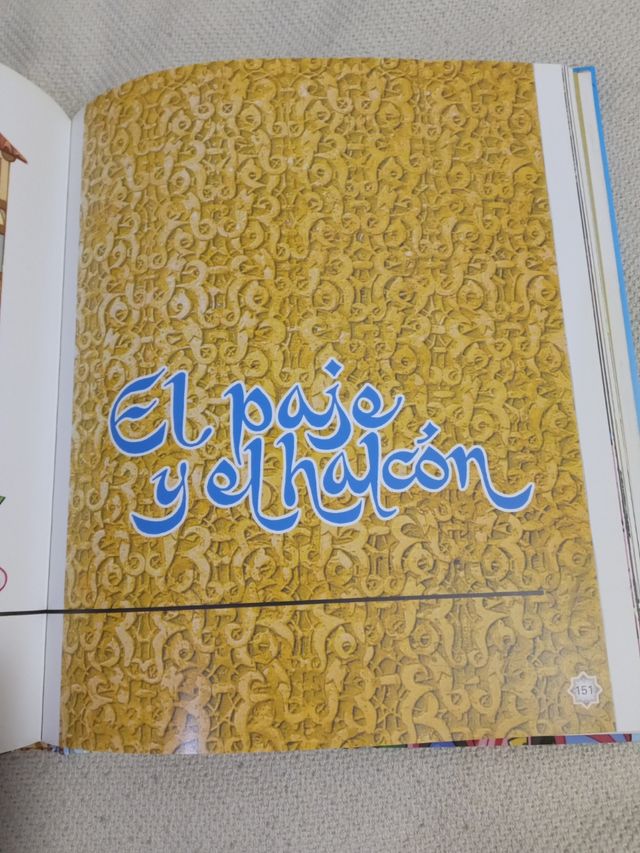 El paje
y el halcón
151